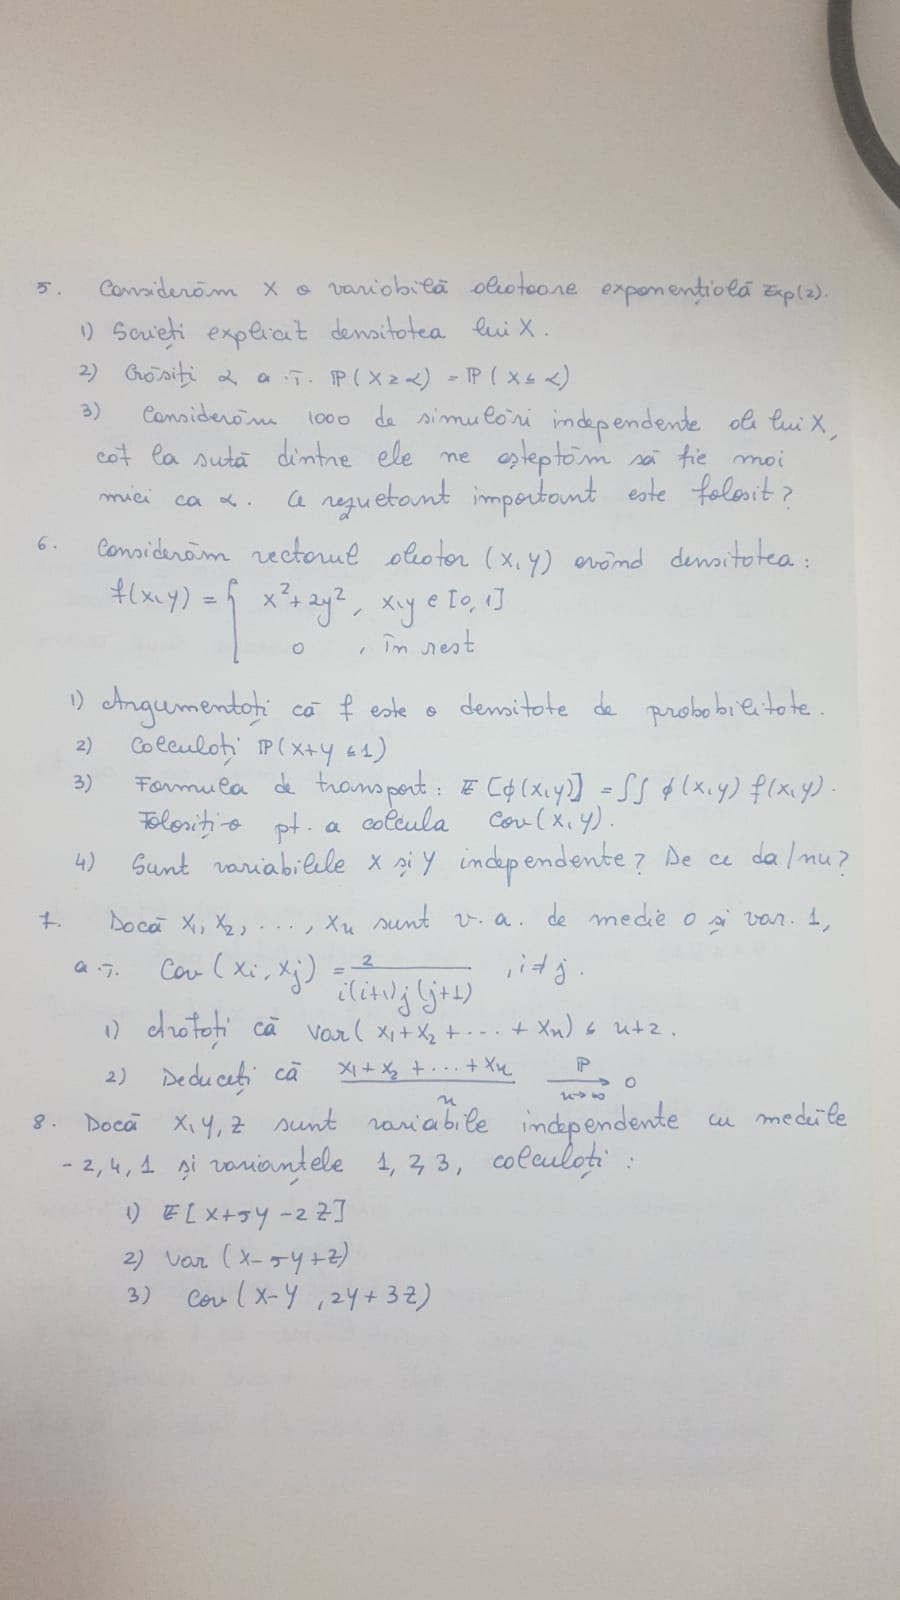 5. Considerăm X o variabilă aleatoare exponențială Exp(2).
1) Scrieți explicit densitatea lui X.
2) Găsiți α a.î. ℙ(X ≥ α) = ℙ(X ≤ α)
3) Considerăm 1000 de simulări independente ale lui X,
cât la sută dintre ele ne așteptăm să fie mai
mici ca α. Ce rezultant important este folosit?
6. Considerăm vectorul aleator (X,Y) având densitatea:
f(x,y) = { x²+2y², x,y ∈ [0,1]
0, în rest
1) Argumentați că f este o densitate de probabilitate.
2) Calculați ℙ(X+Y ≤ 1)
3) Formula de transport: 𝔼[ϕ(X,Y)] = ∫∫ ϕ(x,y) f(x,y).
Folosiți-o pt. a calcula Cov(X,Y).
4) Sunt variabilele X și Y independente? De ce da/nu?
7. Dacă X₁, X₂, ..., Xₙ sunt v.a. de medie 0 și var. 1,
a.î. Cov(Xi, Xj) = 2/(i(i+1)j(j+1)), i≠j.
1) Arătați că Var(X₁+X₂+...+Xₙ) ≤ n+2.
2) Deduceți că (X₁+X₂+...+Xₙ)/n →ℙ (n→∞) 0
8. Dacă X,Y,Z sunt variabile independente cu mediile
-2, 4, 1 și varianțele 1, 2, 3, calculați:
1) 𝔼[X+5Y-2Z]
2) Var(X-5Y+Z)
3) Cov(X-Y, 2Y+3Z)